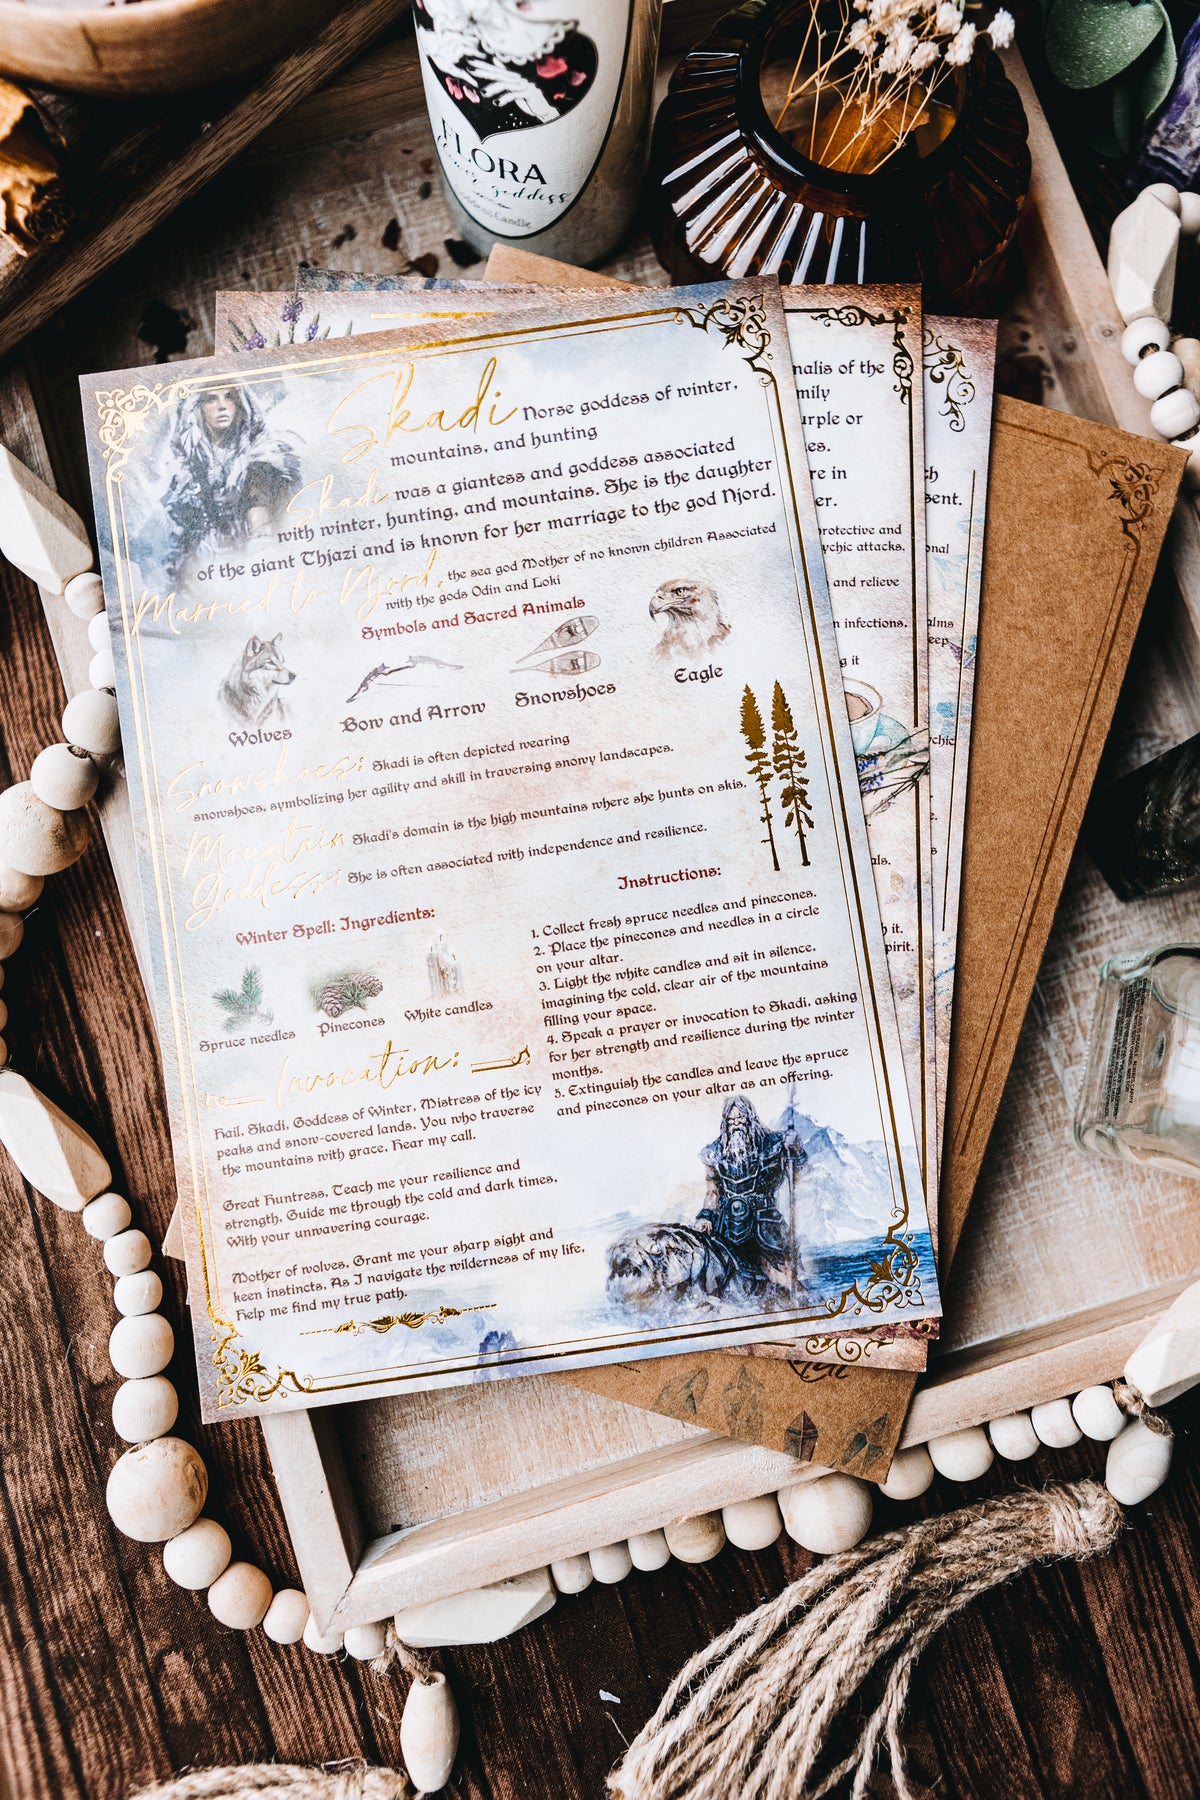 FLORA
goddess
Goddess Candle
Skadi Norse goddess of winter,
mountains, and hunting
Skadi was a giantess and goddess associated
with winter, hunting, and mountains. She is the daughter
of the giant Thjazi and is known for her marriage to the god Njord.
Married to Njord, the sea god Mother of no known children Associated
with the gods Odin and Loki
Symbols and Sacred Animals
Wolves
Bow and Arrow
Snowshoes
Eagle
Snowshoes: Skadi is often depicted wearing
snowshoes, symbolizing her agility and skill in traversing snowy landscapes.
Mountain Skadi's domain is the high mountains where she hunts on skis.
Goddess: She is often associated with independence and resilience.
Winter Spell: Ingredients:
Spruce needles
Pinecones
White candles
Invocation:
Hail, Skadi, Goddess of Winter, Mistress of the icy
peaks and snow-covered lands, You who traverse
the mountains with grace, Hear my call.
Great Huntress, Teach me your resilience and
strength, Guide me through the cold and dark times,
With your unwavering courage.
Mother of wolves, Grant me your sharp sight and
keen instincts, As I navigate the wilderness of my life,
Help me find my true path.
Instructions:
1. Collect fresh spruce needles and pinecones.
2. Place the pinecones and needles in a circle
on your altar.
3. Light the white candles and sit in silence,
imagining the cold, clear air of the mountains
filling your space.
4. Speak a prayer or invocation to Skadi, asking
for her strength and resilience during the winter
months.
5. Extinguish the candles and leave the spruce
and pinecones on your altar as an offering.
nalis of the
mily
urple or
es.
re in
er.
protective and
ychic attacks.
and relieve
n infections.
g it
als.
h it.
pirit.
ch
sent.
onal
alms
eep
ychic